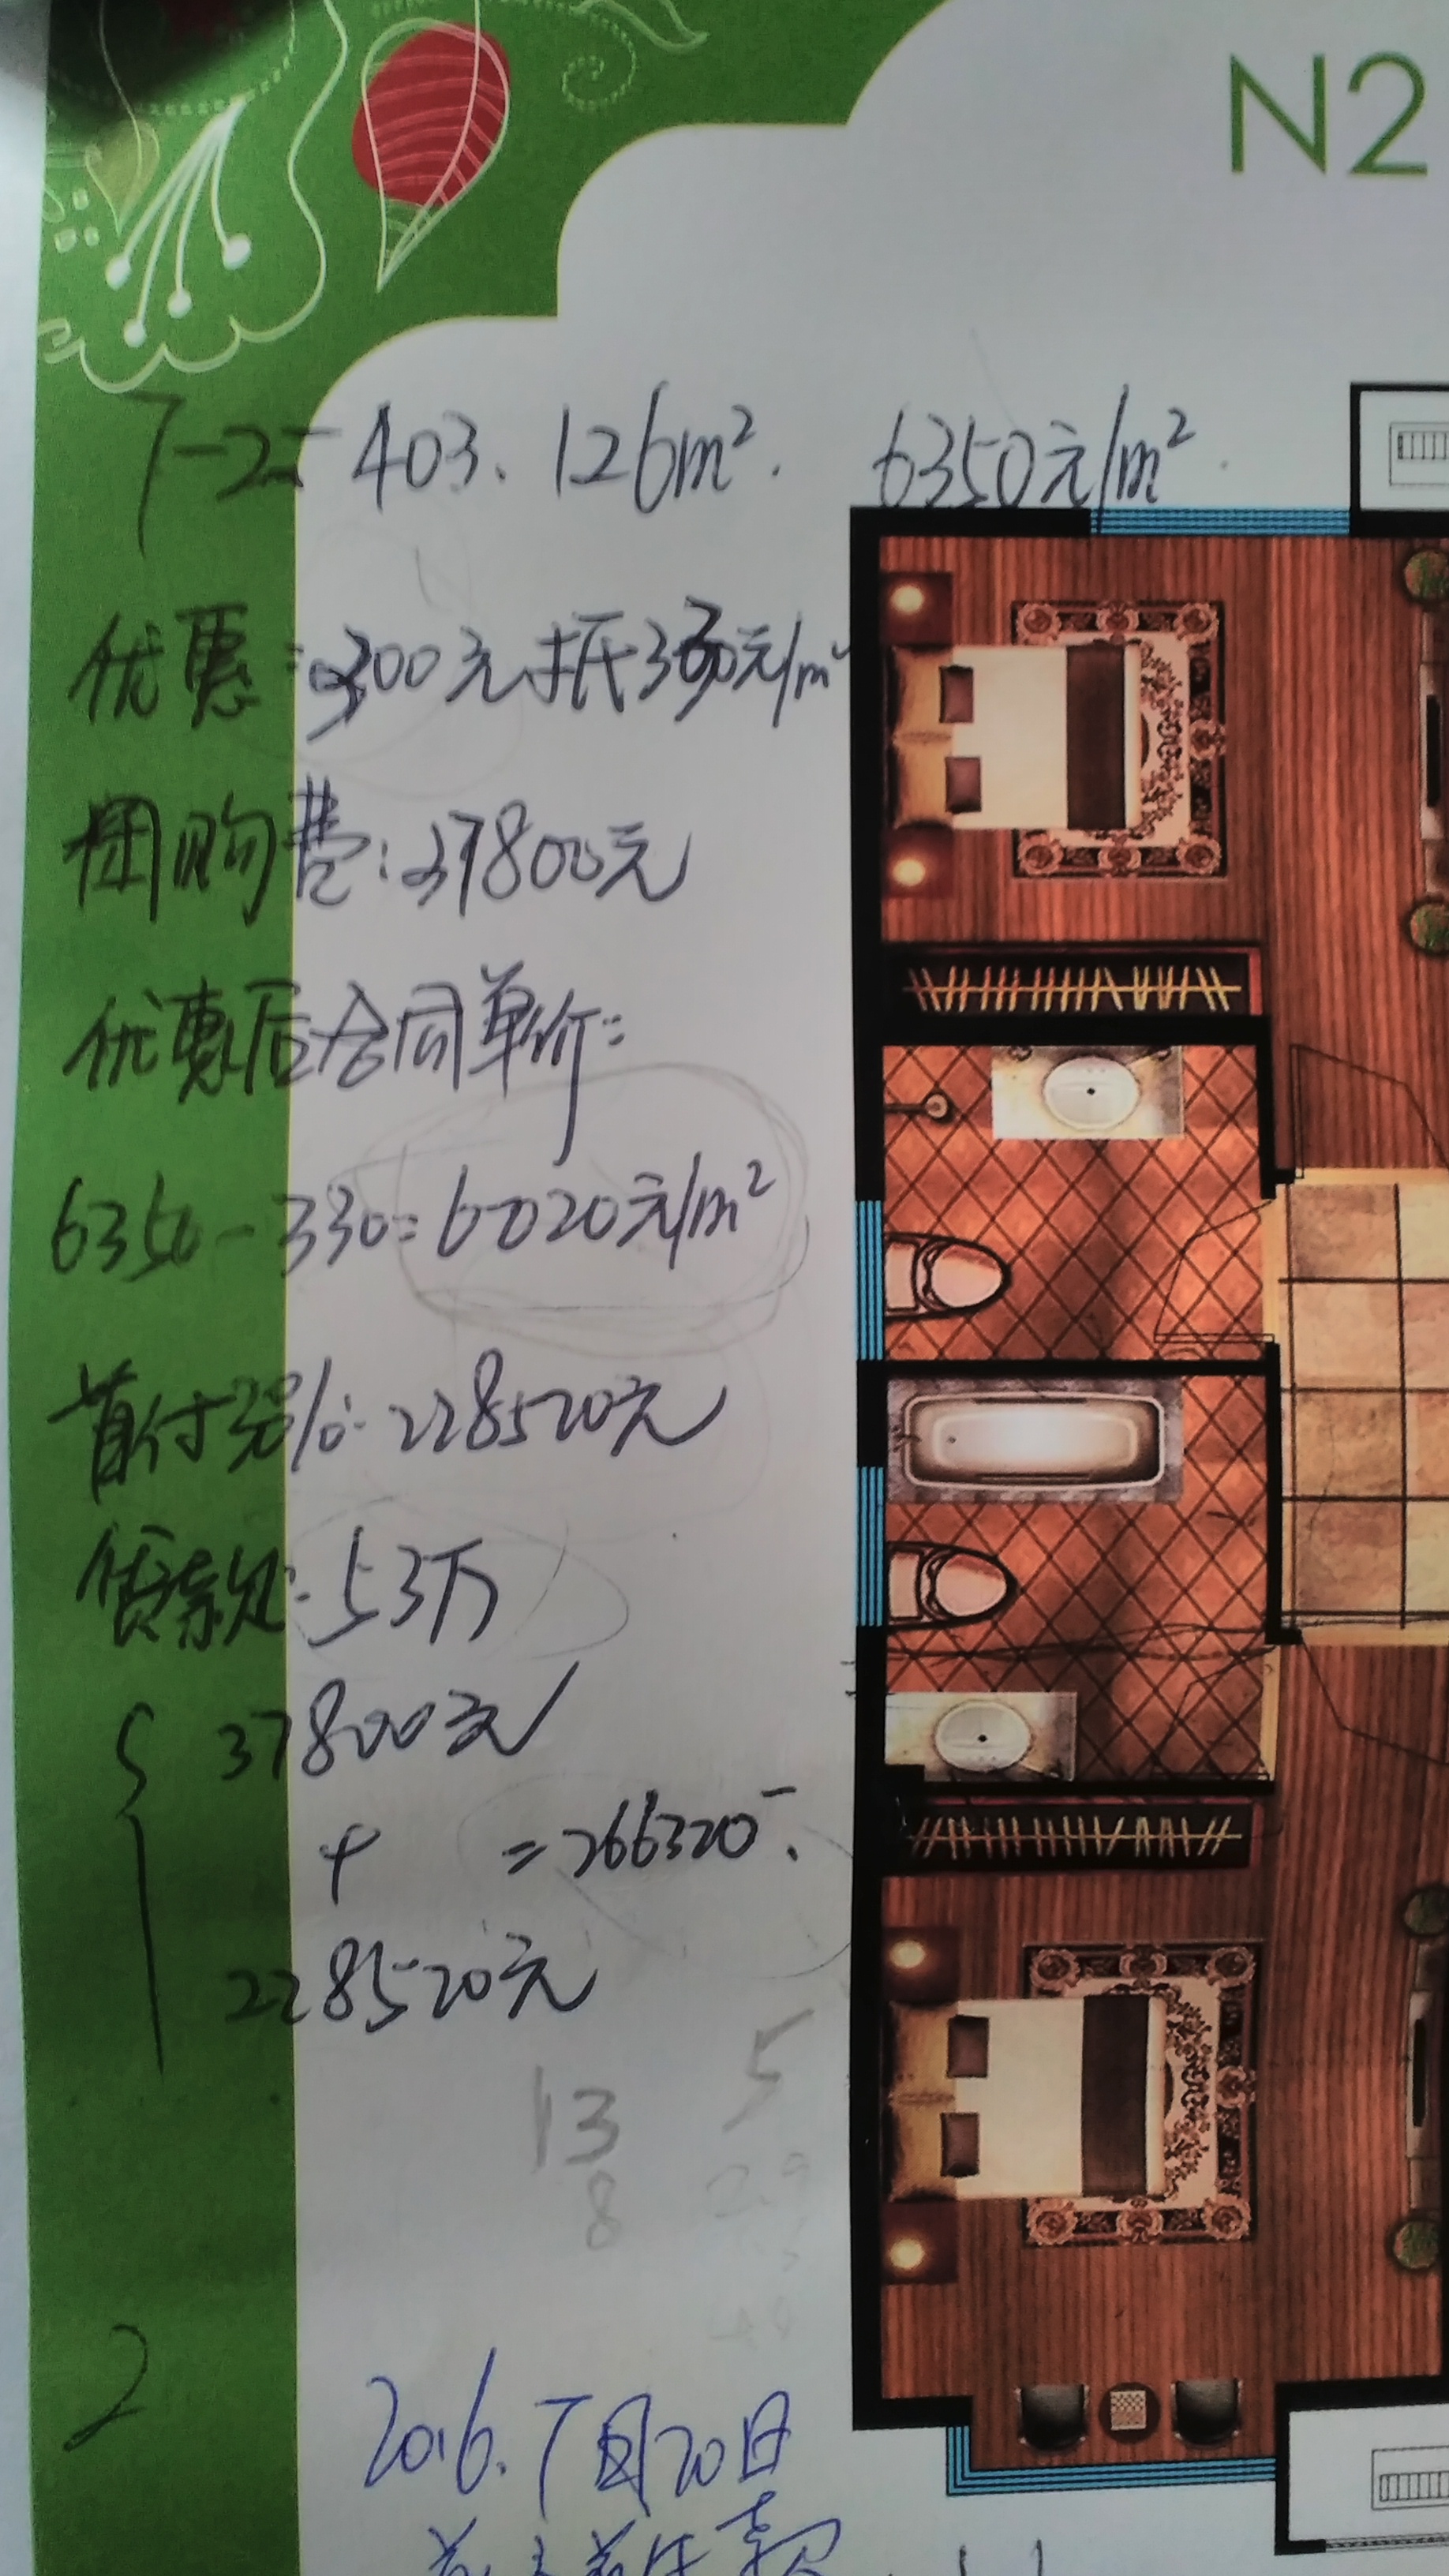 N2
7-2-403. 126m². 6350元/m²
优惠:300元抵330元/m²
团购费:37800元
优惠后合同单价:
6350-330=6020元/m²
首付30%:228520元
贷款:53万
37800元
+ =266320
228520元
5
13
8
2
2016.7月20日